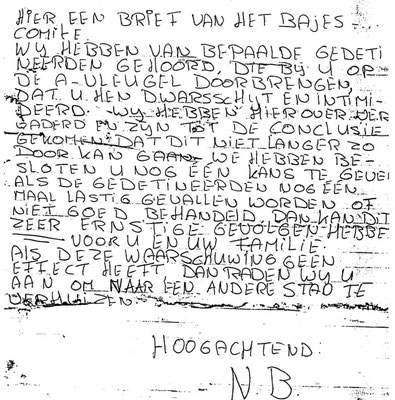 HIER EEN BRIEF VAN HET BAJES-
COMITE.
WY HEBBEN VAN BEPAALDE GEDETI
NEERDEN GEHOORD, DIE BY U OP
DE A-VLEUGEL DOORBRENGEN,
DAT U HEN DWARSSCHYT EN INTIMI-
DEERD. WY HEBBEN HIEROVER VER
GADERD EN ZYN TOT DE CONCLUSIE
GEKOMEN: DAT DIT NIET LANGER ZO
DOOR KAN GAAN. WE HEBBEN BE-
SLOTEN U NOG EEN KANS TE GEVEN
ALS DE GEDETINEERDEN NOG EEN
MAAL LASTIG GEVALLEN WORDEN OF
NIET GOED BEHANDELD, DAN KAN DIT
ZEER ERNSTIGE GEVOLGEN HEBBE
VOOR U EN UW FAMILIE.
ALS DEZE WAARSCHUWING GEEN
EFFECT HEEFT DAN RADEN WY U
AAN OM NAAR EEN ANDERE STAD TE
VERHUIZEN
HOOGACHTEND:
N.B.